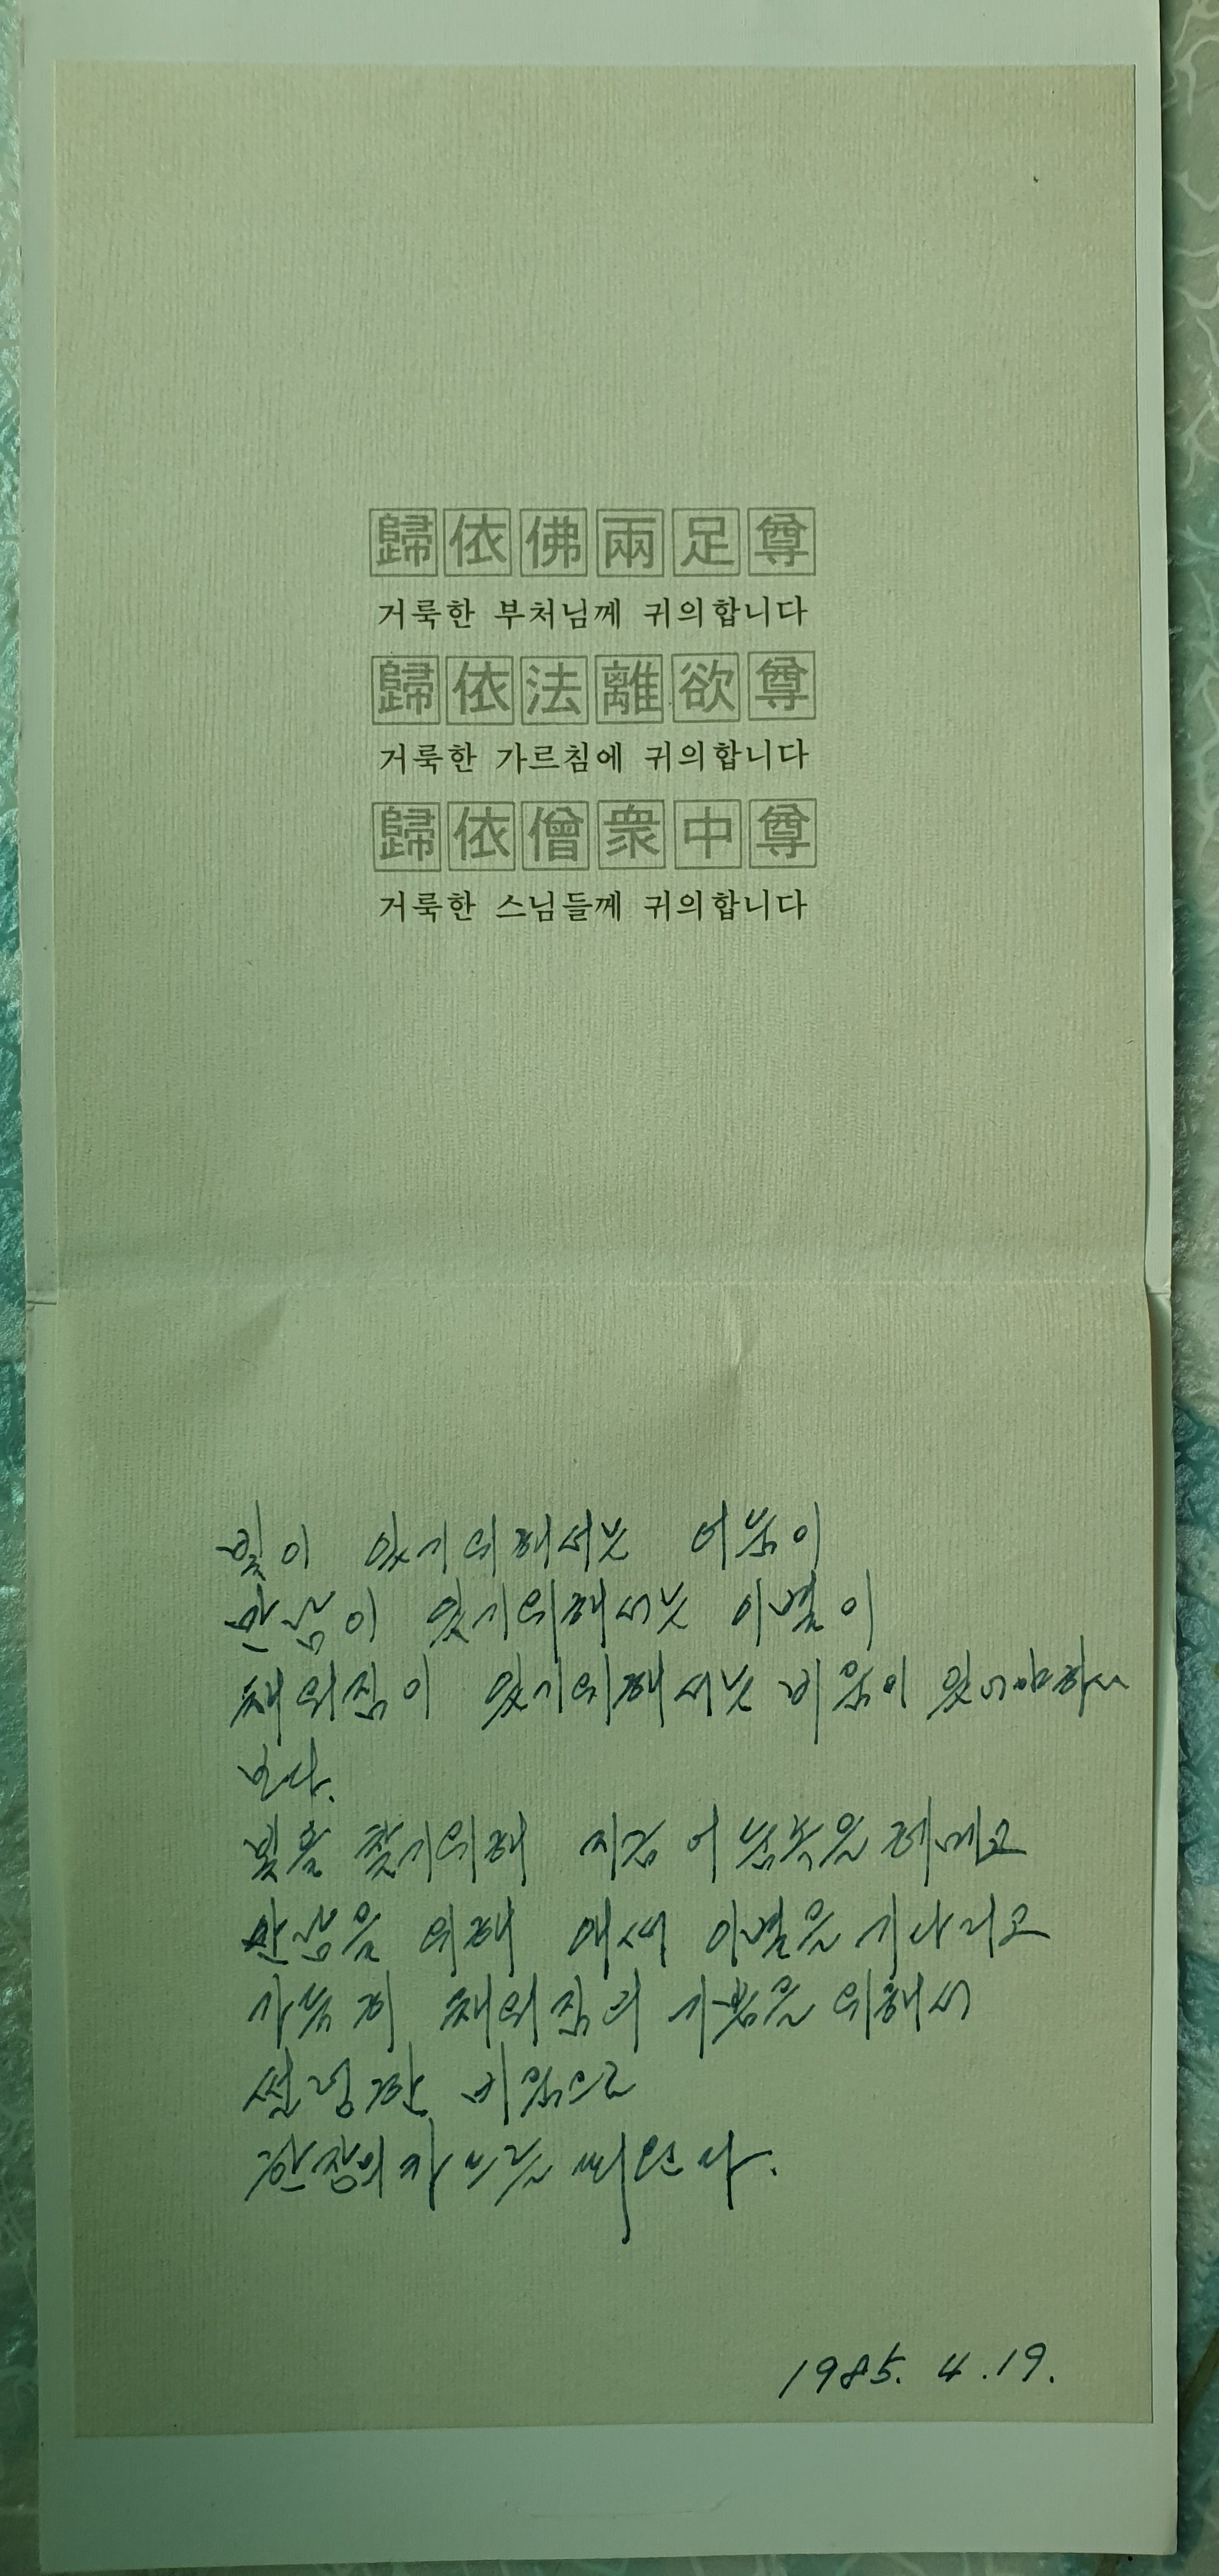 歸依佛兩足尊
거룩한 부처님께 귀의합니다
歸依法離欲尊
거룩한 가르침에 귀의합니다
歸依僧衆中尊
거룩한 스님들께 귀의합니다
빛이 있기위해서는 어둠이
만남이 있기위해서는 이별이
채워짐이 있기위해서는 비움이 있어야하나
보다.
빛을 찾기위해 지금 어둠속을 헤메고
만남을 위해 애써 이별을 기다리고
가득히 채워짐의 기쁨을 위해서
썰렁한 비움으로
한장의 카드를 띄운다.
1985. 4. 19.